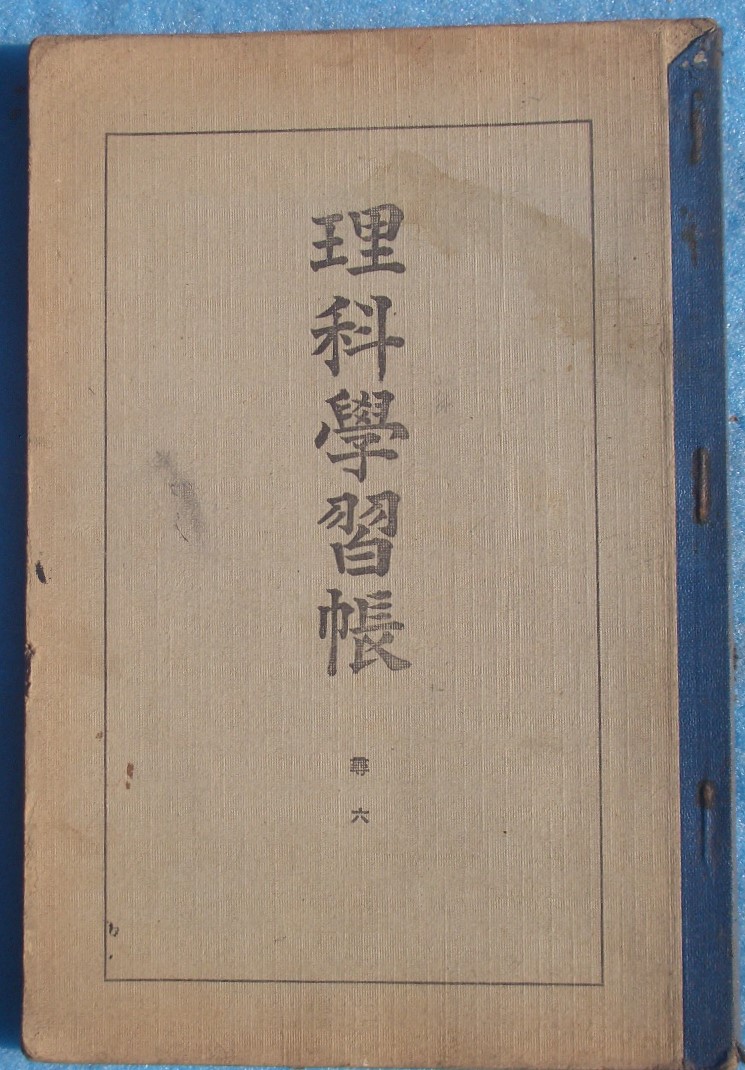 理科學習帳
尋六